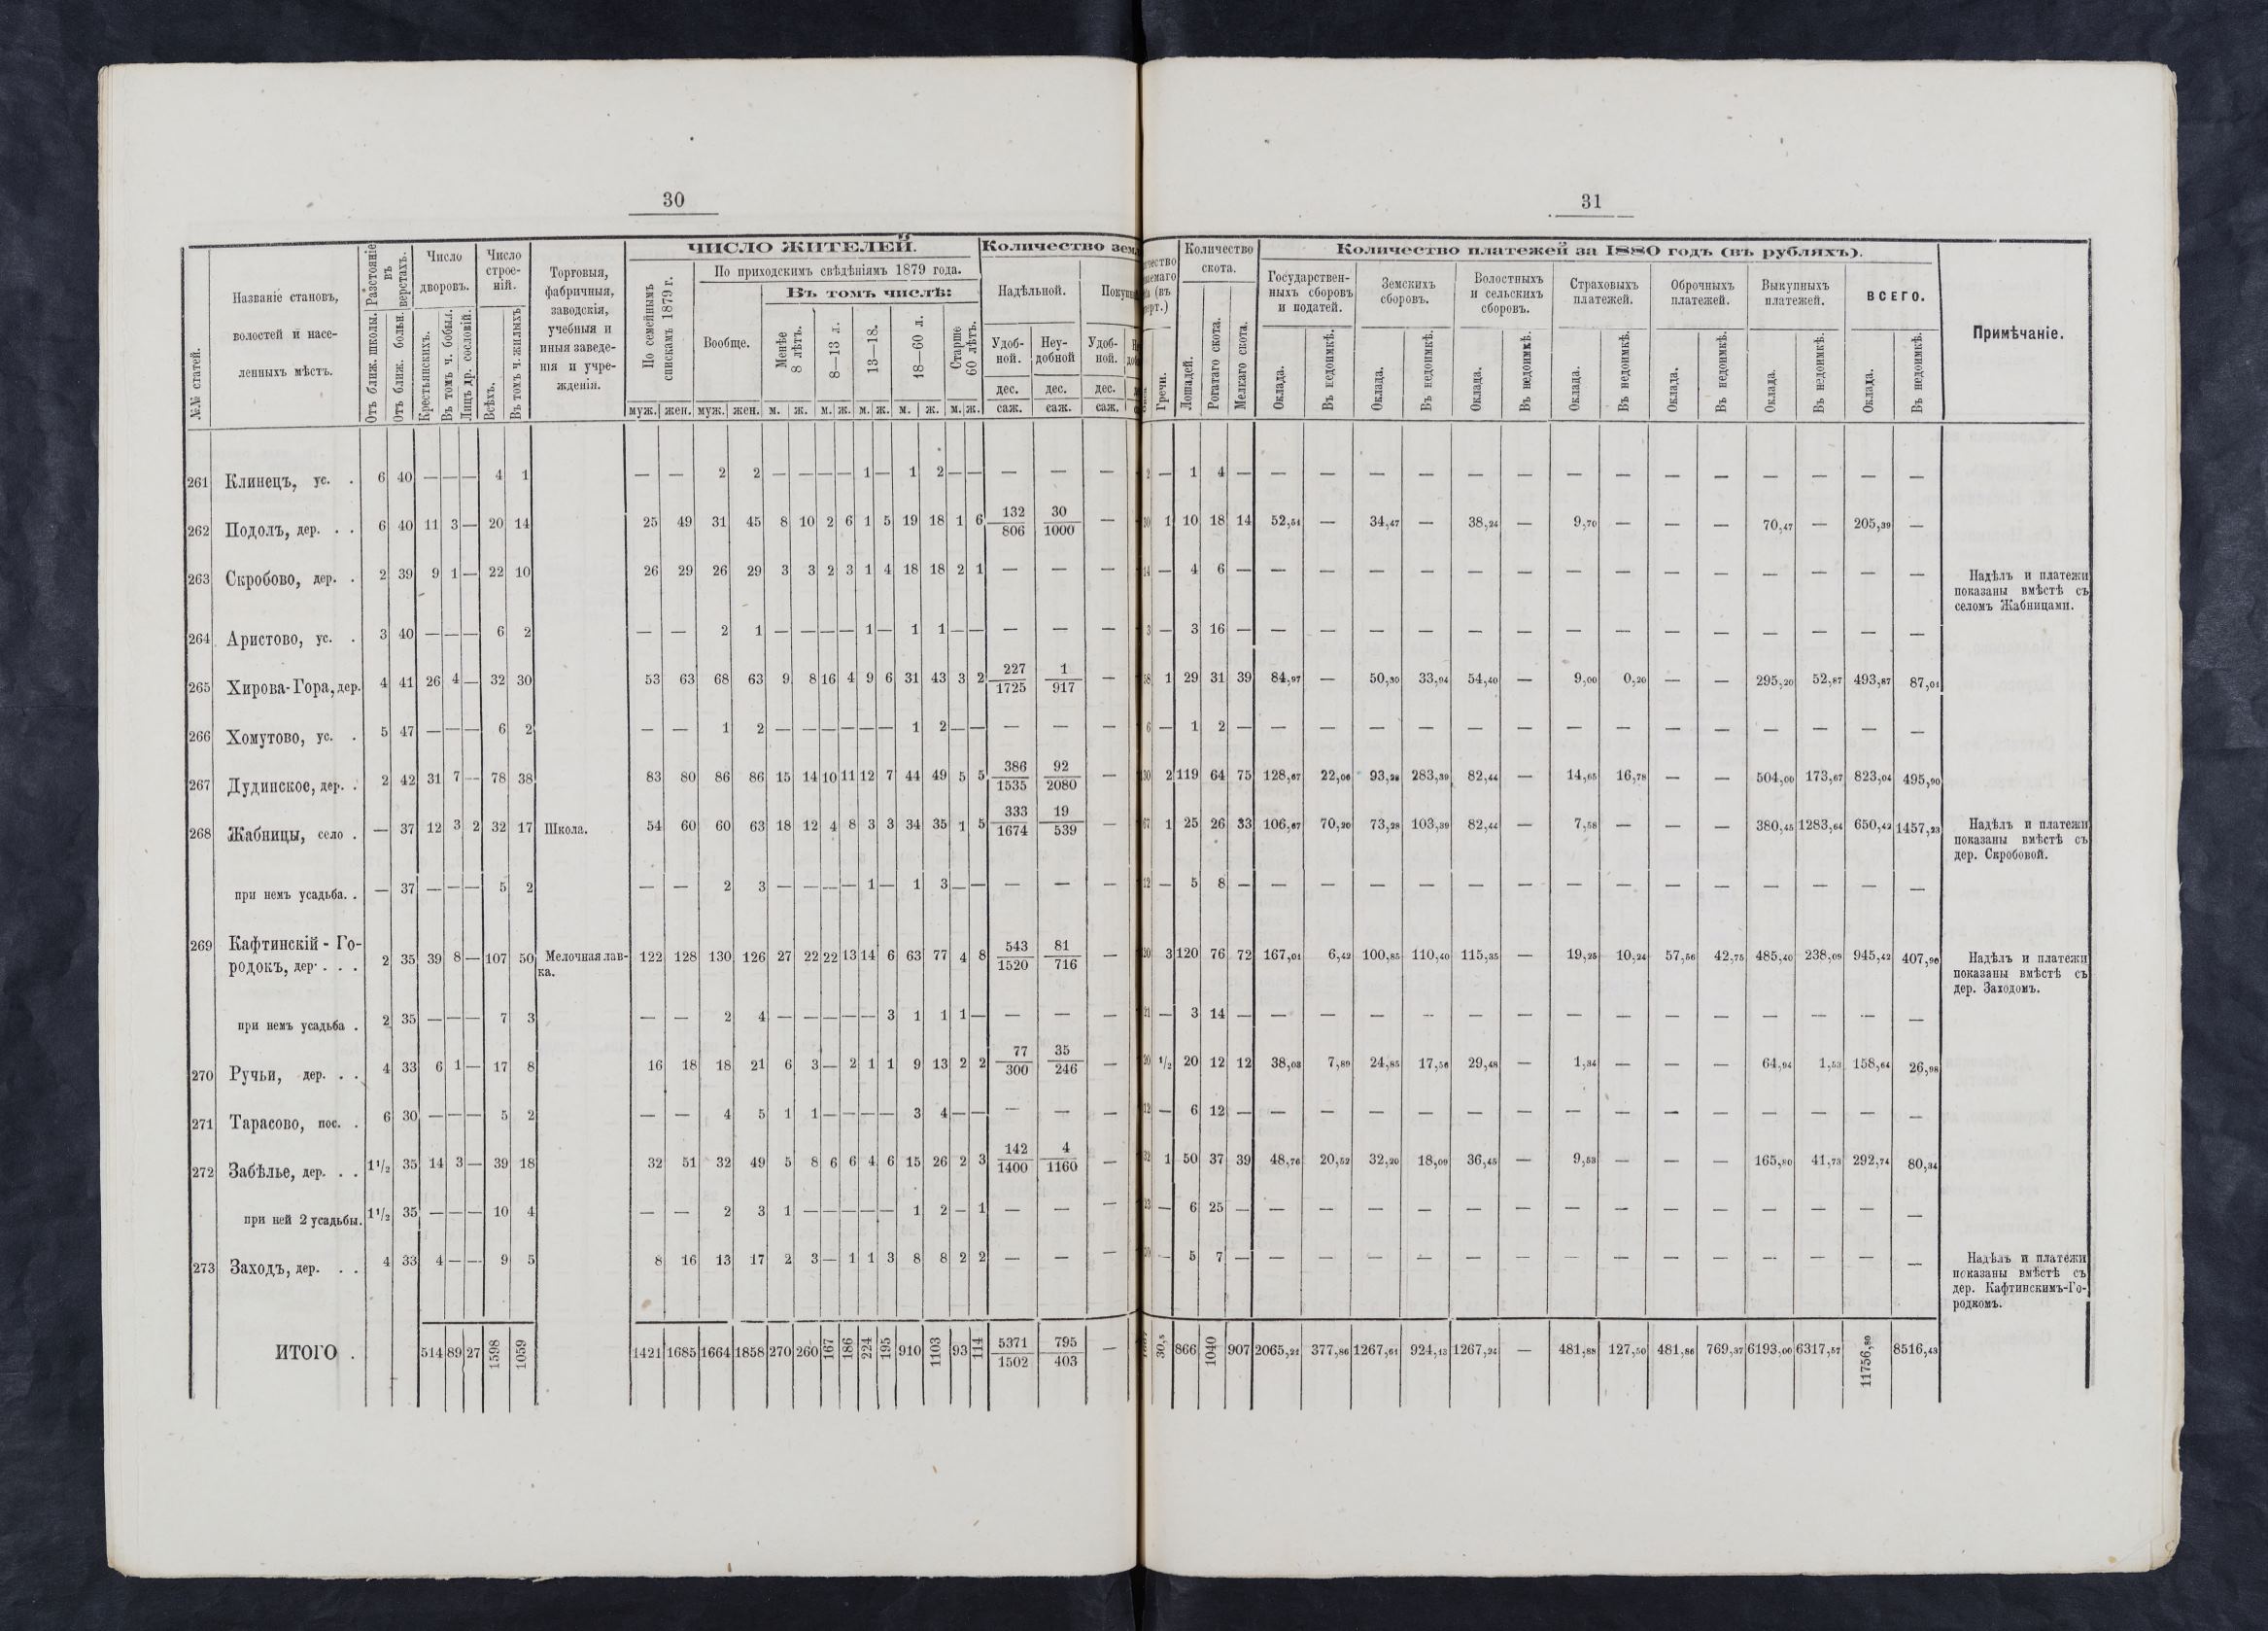 30
31
№№ статей.
Названіе становъ,
волостей и насе-
ленныхъ мѣстъ.
Разстояніе
въ
верстахъ.
Отъ ближ. школы.
Отъ ближ. больн.
Число
дворовъ.
Крестьянскихъ.
Въ томъ ч. бобыл.
Лицъ др. сословій.
Число
строе-
ній.
Всѣхъ.
Въ тохъ ч. жилыхъ
Торговыя,
фабричныя,
заводскія,
учебныя и
иныя заведе-
нія и учре-
жденія.
ЧИСЛО ЖИТЕЛЕЙ.
По семейнымъ
спискамъ 1879 г.
По приходскимъ свѣдѣніямъ 1879 года.
Вообще.
Въ томъ числѣ:
Менѣе
8 лѣтъ.
8—13 л.
13—18.
18—60 л.
Старше
60 лѣтъ.
муж. жен. муж. жен. м. ж. м. ж. м. ж. м. ж. м. ж.
Количество зем
Надѣльной.
Удоб-
ной.
Неу-
добной
Удоб-
ной.
дес. дес. дес.
саж. саж. саж.
Гречи.
Количество
скота.
Лошадей.
Рогатаго скота.
Мелкаго скота.
Количество платежей за 1880 годъ (въ рубляхъ).
Государствен-
ныхъ сборовъ
и податей.
Земскихъ
сборовъ.
Волостныхъ
и сельскихъ
сборовъ.
Страховыхъ
платежей.
Оброчныхъ
платежей.
Выкупныхъ
платежей.
ВСЕГО.
Оклада. Въ недоимкѣ. Оклада. Въ недоимкѣ. Оклада. Въ недоимкѣ. Оклада. Въ недоимкѣ. Оклада. Въ недоимкѣ. Оклада. Въ недоимкѣ. Оклада. Въ недоимкѣ.
Примѣчаніе.
261 Клинецъ, ус. . 6 40 — — — 4 1 — — 2 2 — — — — 1 — 1 2 — — — — — — 1 4 — — — — — — — — — — — — — — —
262 Подолъ, дер. . . 6 40 11 3 — 20 14 25 49 31 45 8 10 2 6 1 5 19 18 1 6 132/806 30/1000 — 1 10 18 14 52,51 — 34,47 — 38,24 — 9,70 — — — 70,47 — 205,39 —
263 Скробово, дер. . 2 39 9 1 — 22 10 26 29 26 29 3 3 2 3 1 4 18 18 2 1 — — — — 4 6 — — — — — — — — — — — — — — —
Надѣлъ и платежи
показаны вмѣстѣ съ
селомъ Жабницами.
264 Аристово, ус. . 3 40 — — — 6 2 — — 2 1 — — — — 1 — 1 1 — — — — — — 3 16 — — — — — — — — — — — — — — —
265 Хирова-Гора, дер. 4 41 26 4 — 32 30 53 63 68 63 9 8 16 4 9 6 31 43 3 2 227/1725 1/917 — 1 29 31 39 84,97 — 50,30 33,94 54,40 — 9,00 0,20 — — 295,20 52,87 493,87 87,01
266 Хомутово, ус. . 5 47 — — — 6 2 — — 1 2 — — — — — — 1 2 — — — — — — 1 2 — — — — — — — — — — — — — — —
267 Дудинское, дер. . 2 42 31 7 — 78 38 83 80 86 86 15 14 10 11 12 7 44 49 5 5 386/1535 92/2080 — 2 119 64 75 128,67 22,06 93,28 283,39 82,44 — 14,65 16,78 — — 504,00 173,67 823,04 495,90
268 Жабницы, село . — 37 12 3 2 32 17 Школа. 54 60 60 63 18 12 4 8 3 3 34 35 1 5 333/1674 19/539 — 1 25 26 33 106,67 70,20 73,28 103,39 82,44 — 7,58 — — — 380,45 1283,64 650,42 1457,23
Надѣлъ и платежи
показаны вмѣстѣ съ
дер. Скробовой.
при немъ усадьба. . — 37 — — — 5 2 — — 2 3 — — — — 1 — 1 3 — — — — — — 5 8 — — — — — — — — — — — — — — —
269 Кафтинскій - Го-
родокъ, дер. . . . 2 35 39 8 — 107 50 Мелочная лав-
ка.
122 128 130 126 27 22 22 13 14 6 63 77 4 8 543/1520 81/716 — 3 120 76 72 167,01 6,42 100,85 110,40 115,35 — 19,25 10,24 57,56 42,75 485,40 238,09 945,42 407,90
Надѣлъ и платежи
показаны вмѣстѣ съ
дер. Заходомъ.
при немъ усадьба . 2 35 — — — 7 3 — — 2 4 — — — — — 3 1 1 1 — — — — — 3 14 — — — — — — — — — — — — — — —
270 Ручьи, дер. . . 4 33 6 1 — 17 8 16 18 18 21 6 3 — 2 1 1 9 13 2 2 77/300 35/246 — 1/2 20 12 12 38,03 7,89 24,85 17,56 29,48 — 1,34 — — — 64,94 1,53 158,64 26,98
271 Тарасово, пос. . 6 30 — — — 5 2 — — 4 5 1 1 — — — — 3 4 — — — — — — 6 12 — — — — — — — — — — — — — — —
272 Забѣлье, дер. . . 1 1/2 35 14 3 — 39 18 32 51 32 49 5 8 6 6 4 6 15 26 2 3 142/1400 4/1160 — 1 50 37 39 48,76 20,52 32,20 18,09 36,45 — 9,53 — — — 165,80 41,73 292,74 80,34
при ней 2 усадьбы. 1 1/2 35 — — — 10 4 — — 2 3 1 — — — — — 1 2 — 1 — — — — 6 25 — — — — — — — — — — — — — — —
273 Заходъ, дер. . . 4 33 4 — — 9 5 8 16 13 17 2 3 — 1 1 3 8 8 2 2 — — — — 5 7 — — — — — — — — — — — — — — —
Надѣлъ и платежи
показаны вмѣстѣ съ
дер. Кафтинскимъ-Го-
родкомъ.
ИТОГО . 514 89 27 1598 1059 1421 1685 1664 1858 270 260 167 186 224 195 910 1103 93 114 5371/1502 795/403 — 30,5 866 1040 907 2065,21 377,86 1267,61 924,13 1267,24 — 481,88 127,50 481,86 769,37 6193,00 6317,57 11756,80 8516,43